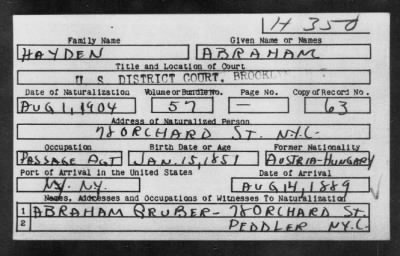 H 350
Family Name Given Name or Names
HAYDEN ABRAHAM
Title and Location of Court
U. S. DISTRICT COURT, BROOKLYN
Date of Naturalization Volume or Bundle No. Page No. Copy of Record No.
AUG 1, 1904 57 — 63
Address of Naturalized Person
78 ORCHARD ST. N.Y.C.
Occupation Birth Date or Age Former Nationality
PASSAGE AGT JAN. 15, 1851 AUSTRIA-HUNGARY
Port of Arrival in the United States Date of Arrival
NY. NY. AUG 14, 1889
Names, Addresses and Occupations of Witnesses To Naturalization
1 ABRAHAM GRUBER- 78 ORCHARD ST.
2 PEDDLER N.Y.C.